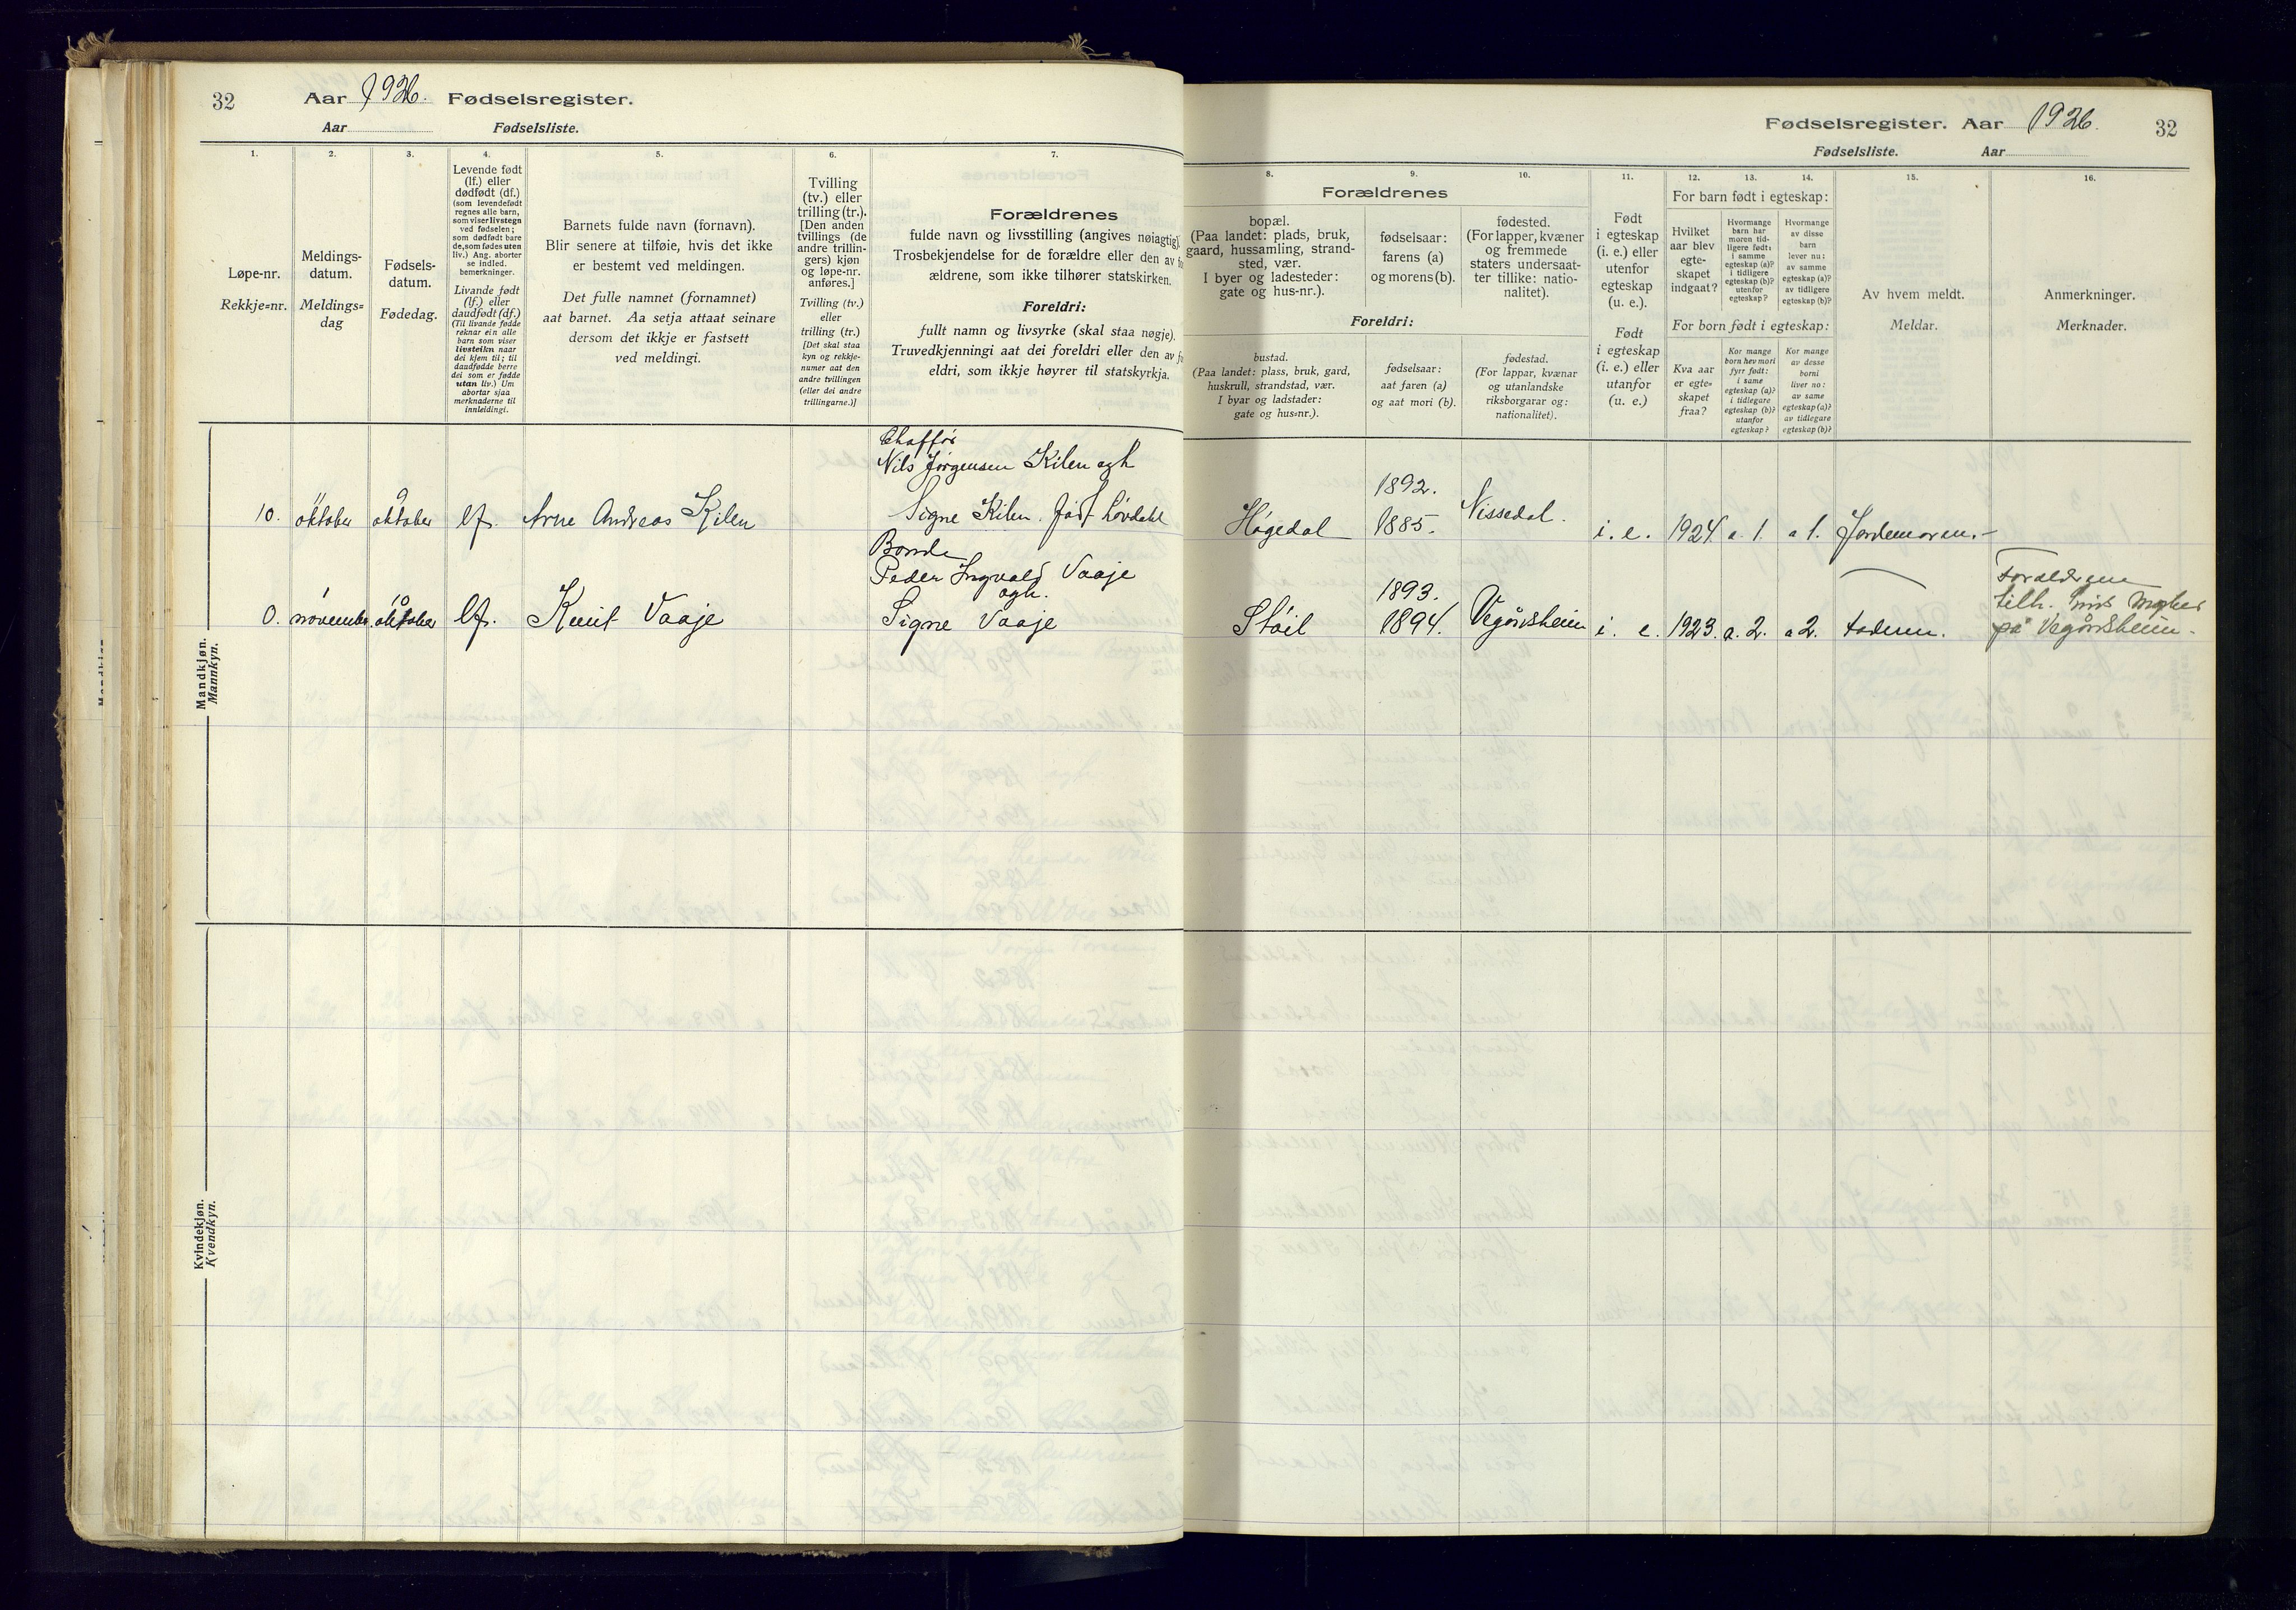 32
Aar 1926. Fødselsregister.
Aar Fødselsliste.
1.
2.
3.
4.
5.
6.
7.
Løpe-nr.
Rekkje=nr.
Meldings-
datum.
Meldings=
dag
Fødsels-
datum.
Fødedag.
Levende født
(lf.) eller
dødfødt (df.)
(som levendefødt
regnes alle barn,
som viser livstegn
ved fødselen;
som dødfødt bare
de, som fødes uten
liv.) Ang. aborter
se indled.
bemerkninger.
Livande født
(lf.) eller
daudfødt (df.)
(Til livande fødde
reknar ein alle
barn som viser
livsteikn naar
dei kjem til; til
daudfødde berre
dei som er fødde
utan liv.) Um
abortar sjaa
merknaderne til
innleidingi.
Barnets fulde navn (fornavn).
Blir senere at tilføie, hvis det ikke
er bestemt ved meldingen.
Det fulle namnet (fornamnet)
aat barnet. Aa setja attaat seinare
dersom det ikkje er fastsett
ved meldingi.
Tvilling
(tv.) eller
trilling (tr.).
[Den anden
tvillings (de
andre trillin-
gers) kjøn
og løpe-nr.
anføres.]
Tvilling (tv.)
eller
trilling (tr.)
[Det skal staa
kyn og rekkje-
numer aat den
andre tvillingen
(eller dei andre
trillingarne.)]
Forældrenes
fulde navn og livsstilling (angives nøiagtig).
Trosbekjendelse for de forældre eller den av
ældrene, som ikke tilhører statskirken.
Foreldri:
fullt namn og livsyrke (skal staa nøgje).
Truvedkjenningi aat dei foreldri eller den av
eldri, som ikkje høyrer til statskyrkja.
Mandkjøn.
Mannkyn.
Chaffør
Nils Jørgensen Kilen ogh
10. 11 oktober 9 oktober lf. Arne Andreas Kilen Signe Kilen. født Løvdahl
Bonde
Peder Ingvald Vaaje
ogh.
0. 1 november. 10 oktober lf. Knut Vaaje Signe Vaaje
Kvindekjøn.
Kvendkyn.
Fødselsregister. Aar 1926. 32
Fødselsliste. Aar
8.
9.
10.
11.
12.
13.
14.
15.
16.
Forældrenes
bopæl.
(Paa landet: plads, bruk,
gaard, hussamling, strand-
sted, vær.
I byer og ladesteder:
gate og hus-nr.).
fødselsaar:
farens (a)
og morens (b).
fødested.
(For lapper, kvæner
og fremmede
staters undersaat-
ter tillike: natio-
nalitet).
Foreldri:
bustad.
(Paa landet: plass, bruk, gard,
huskrull, strandstad, vær.
I byar og ladstader:
gate og hus=nr.).
fødselsaar:
aat faren (a)
og aat mori (b).
fødestad.
(For lappar, kvænar
og utanlandske
riksborgarar og:
nationalitet).
Født
i egteskap
(i. e.) eller
utenfor
egteskap
(u. e.).
Født
i egteskap
(i. e.) eller
utanfor
egteskap
(u. e.)
For barn født i egteskap:
Hvilket
aar blev
egte-
skapet
indgaat?
Hvormange
barn har
moren tid-
ligere født:
i samme
egteskap (a)?
i tidligere
egteskap (b)?
utenfor
egteskap?
Hvormange
av disse
barn
lever nu:
av samme
egteskap (a)?
av tidligere
egteskap (b)?
For born født i egteskap:
Kva aar
er egte=
skapet
fraa?
Kor mange
born hev mori
fyrr født:
i same
egteskap (a)?
i tidlegare
egteskap (b)?
utanfor
egteskap?
Kor mange
av desse
borni
liver no:
av same
egteskap (a)?
av tidlegare
egteskap (b)?
Av hvem meldt.
Meldar.
Anmerkninger.
Merknader.
1892.
Høgedal 1885. Nissedal. i. e. 1924. a. 1. a 1. Jordemoren.
1893.
Støil 1894. Vegårdsheim i. e. 1923. a. 2. a 2. faderen.
Forældrene
tilh.
på Vegårdsheim.